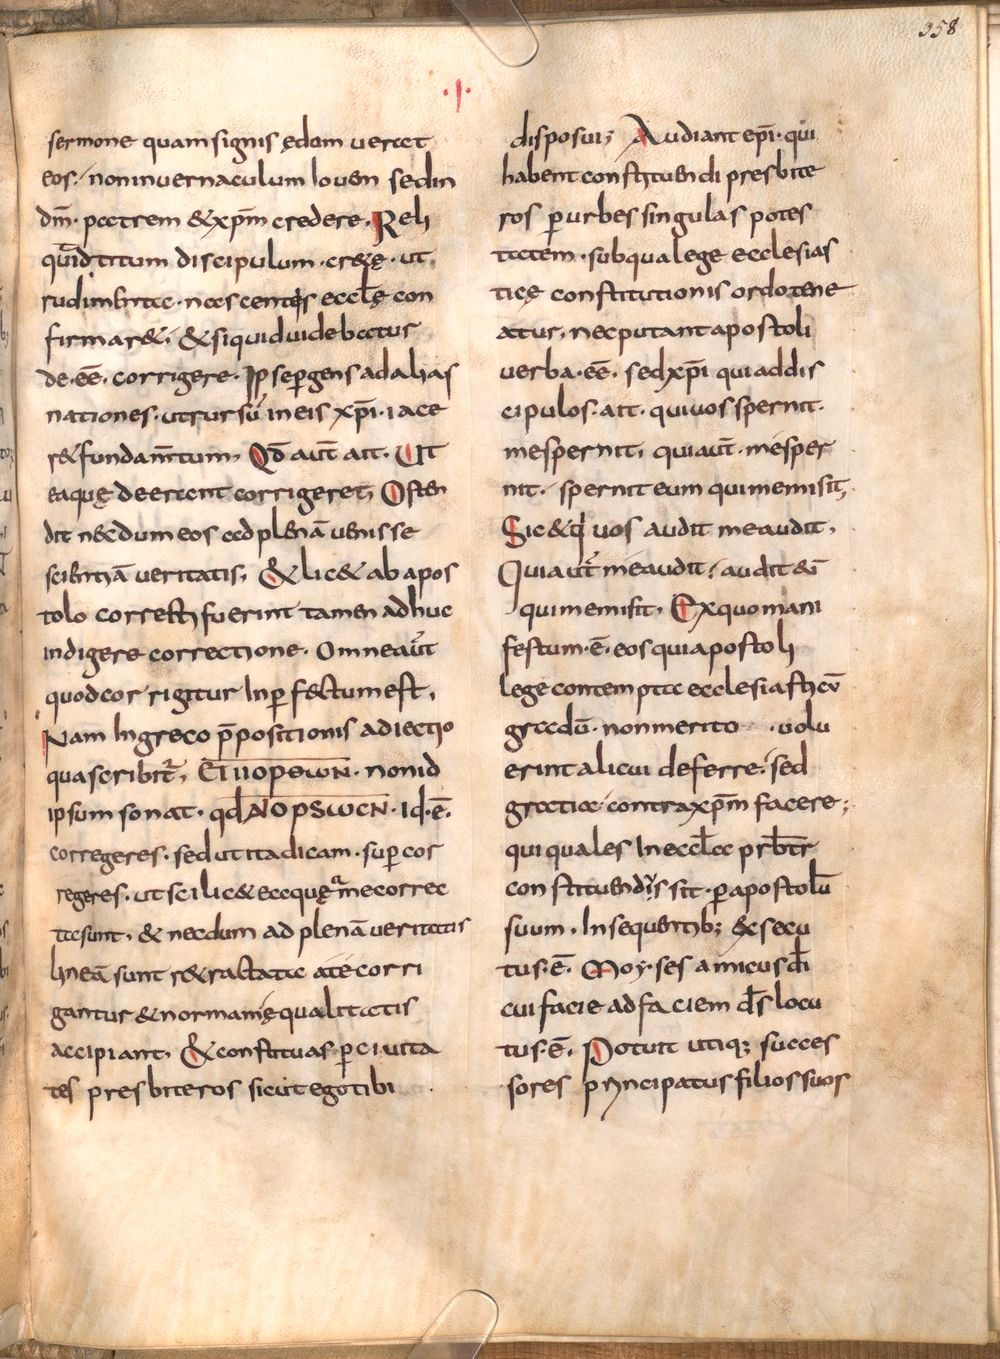 358
·I·
sermone quam signis ędom uertet
eos·/ non in uernaculum louen sed in
dm̄· patrem & xp̄m credere· Reli
quid titum discipulum· cr&ę· ut
rudimenta· nascentis eccłę con
firmar&· & si quid uidebatur
de·eē· corrigere· Ipse pergens ad alias
nationes· ut rursū in eis xp̄i· iace
r& fundam̄tum, Qd̄ aut̄ ait· Ut
ea quę deerant corrigeret, Osten
dit necdum eos ad plenā uenisse
scientiā ueritatis, & lic& ab apos
tolo correcti fuerint tamen adhuc
indigere correctione· Omne aut̄
quod corrigitur Inperfectum est,
Nam In greco p̄positionis adiectio
qua scribit̄, ΕΠΙΔΙΟΡΘΩΝ· non id
ipsum sonat· qd ΔΙΟΡΘΩCΗ· Id·ē·
corregeres· sed ut ita dicam· super cor
regeres· ut scilic& ea quę a me correc
ta sunt, & necdum ad plenā ueritatis
lineā sunt r&ractata a te corri
gantur & normam ęqualitatis
accipiant, & constituas per ciuita
tes presbiteros sicut ego tibi
disposui; Audiant ep̄i· qui
habent constituendi presbite
ros per urbes singulas potes
tatem· sub qua lege ecclesias
ticę constitutionis ordo tene
atur, nec putant apostoli
uerba·eē· sed xp̄i qui ad dis
cipulos· ait· qui uos spernit·
me spernit, qui aut̄· me sper
nit· spernit eum qui me misit,
Sic & q̇ uos audit me audit,
Qui aut̄ me audit· audit eū
qui me misit, Ex quo mani
festum·ē· eos qui apostoli
lege contempta ecclesiasticū
gradū· non merito · uolu
erint alicui deferre· sed
gratiae· contra xp̄m facere;
qui quales In eccła prb̄tr
constituendis sit· per apostolū
suum, In sequentib; exsecu
tus·ē· Moyses amicus dī
cui facie ad faciem dS locu
tus·ē, Potuit utiq; succes
sores principatus filios suos